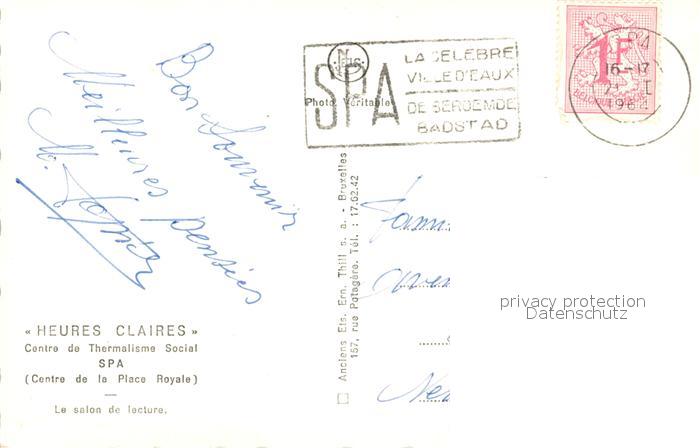 Bon Souvenir
Meilleures pensées
M.
« HEURES CLAIRES »
Centre de Thermalisme Social
SPA
(Centre de la Place Royale)
Le salon de lecture.
Anciens Ets. Ern. Thill s. a. - Bruxelles
157, rue Potagère. Tél. : 17.62.42
Photo Véritable
SPA
LA CELEBRE
VILLE D'EAUX
DE BEROEMDE
BADSTAD
1F
SPA
16-17
I
1964
Fam
aven
privacy protection
Datenschutz